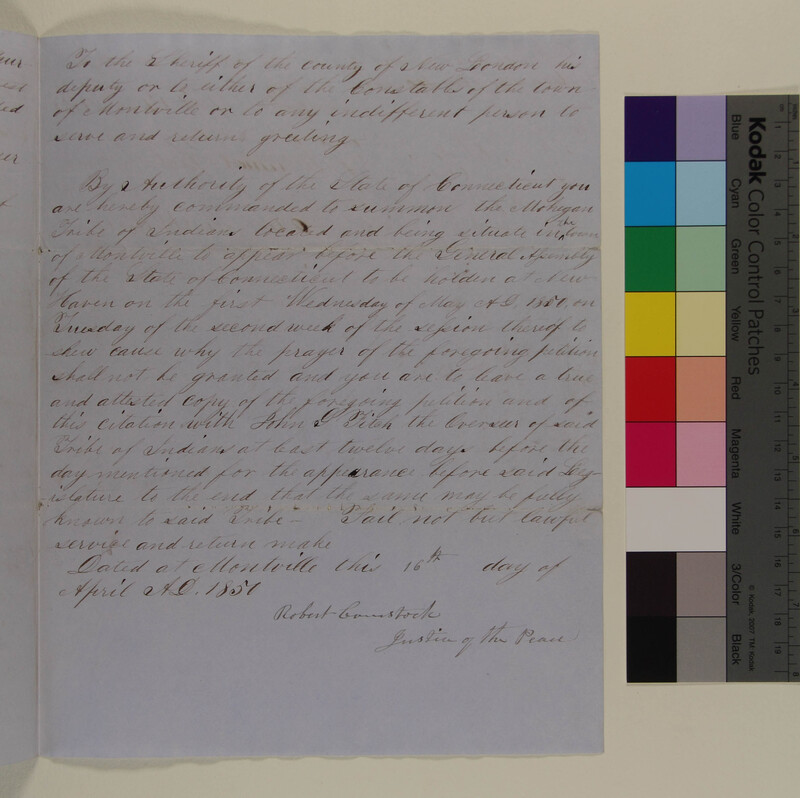 To the Sheriff of the county of New London his
deputy or to either of the Constables of the town
of Montville or to any indifferent person to
serve and return greeting
By Authority of the State of Connecticut you
are hereby commanded to summon the Mohegan
Tribe of Indians located and being situate in the town
of Montville to appear before the General Assembly
of the State of Connecticut to be holden at New
haven on the first Wednesday of May A.D. 1850, on
Tuesday of the second week of the session thereof to
shew cause why the prayer of the foregoing petition
shall not be granted and you are to leave a true
and attested copy of the foregoing petition and of
this citation with John G Fitch the Overseer of said
Tribe of Indians at least twelve days before the
day mentioned for the appearance before said Leg-
islature to the end that the same may be fully
known to said Tribe — Fail not but lawful
service and return make
Dated at Montville this 16th day of
April A.D. 1850
Robert Comstock
Justice of the Peace
Kodak Color Control Patches
Blue
Cyan
Green
Yellow
Red
Magenta
White
3/Color
Black
© Kodak, 2007 TM: Kodak